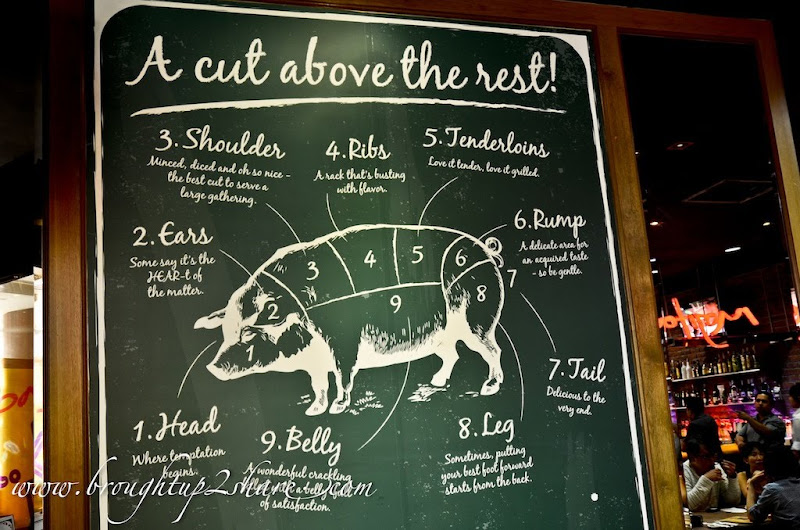 A cut above the rest!
3.Shoulder
Minced, diced and oh so nice -
the best cut to serve a
large gathering.
4.Ribs
A rack that's busting
with flavor.
5.Tenderloins
Love it tender, love it grilled.
2.Ears
Some say it's the
HEAR-t of
the matter.
6.Rump
A delicate area for
an acquired taste
- so be gentle.
3
4
5
6
7
2
9
8
1
7.Tail
Delicious to the
very end.
1.Head
Where temptation
begins.
9.Belly
A wonderful crackling
of satisfaction.
8.Leg
Sometimes, putting
your best foot forward
starts from the back.
www.broughtup2share.com